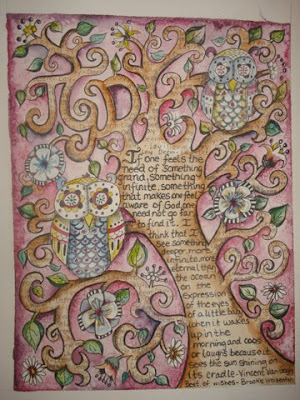 If one feels the
need of something
grand, something
infinite, something
that makes one feel
aware of God, one
need not go far
to find it. I
think that I
see something
deeper, more
infinite, more
eternal than
the ocean
in the
expression
of the eyes
of a little baby
when it wakes
up in the
morning and coos
or laughs because it
sees the sun shining on
its cradle - Vincent Van Gogh
Best of wishes - Brooke